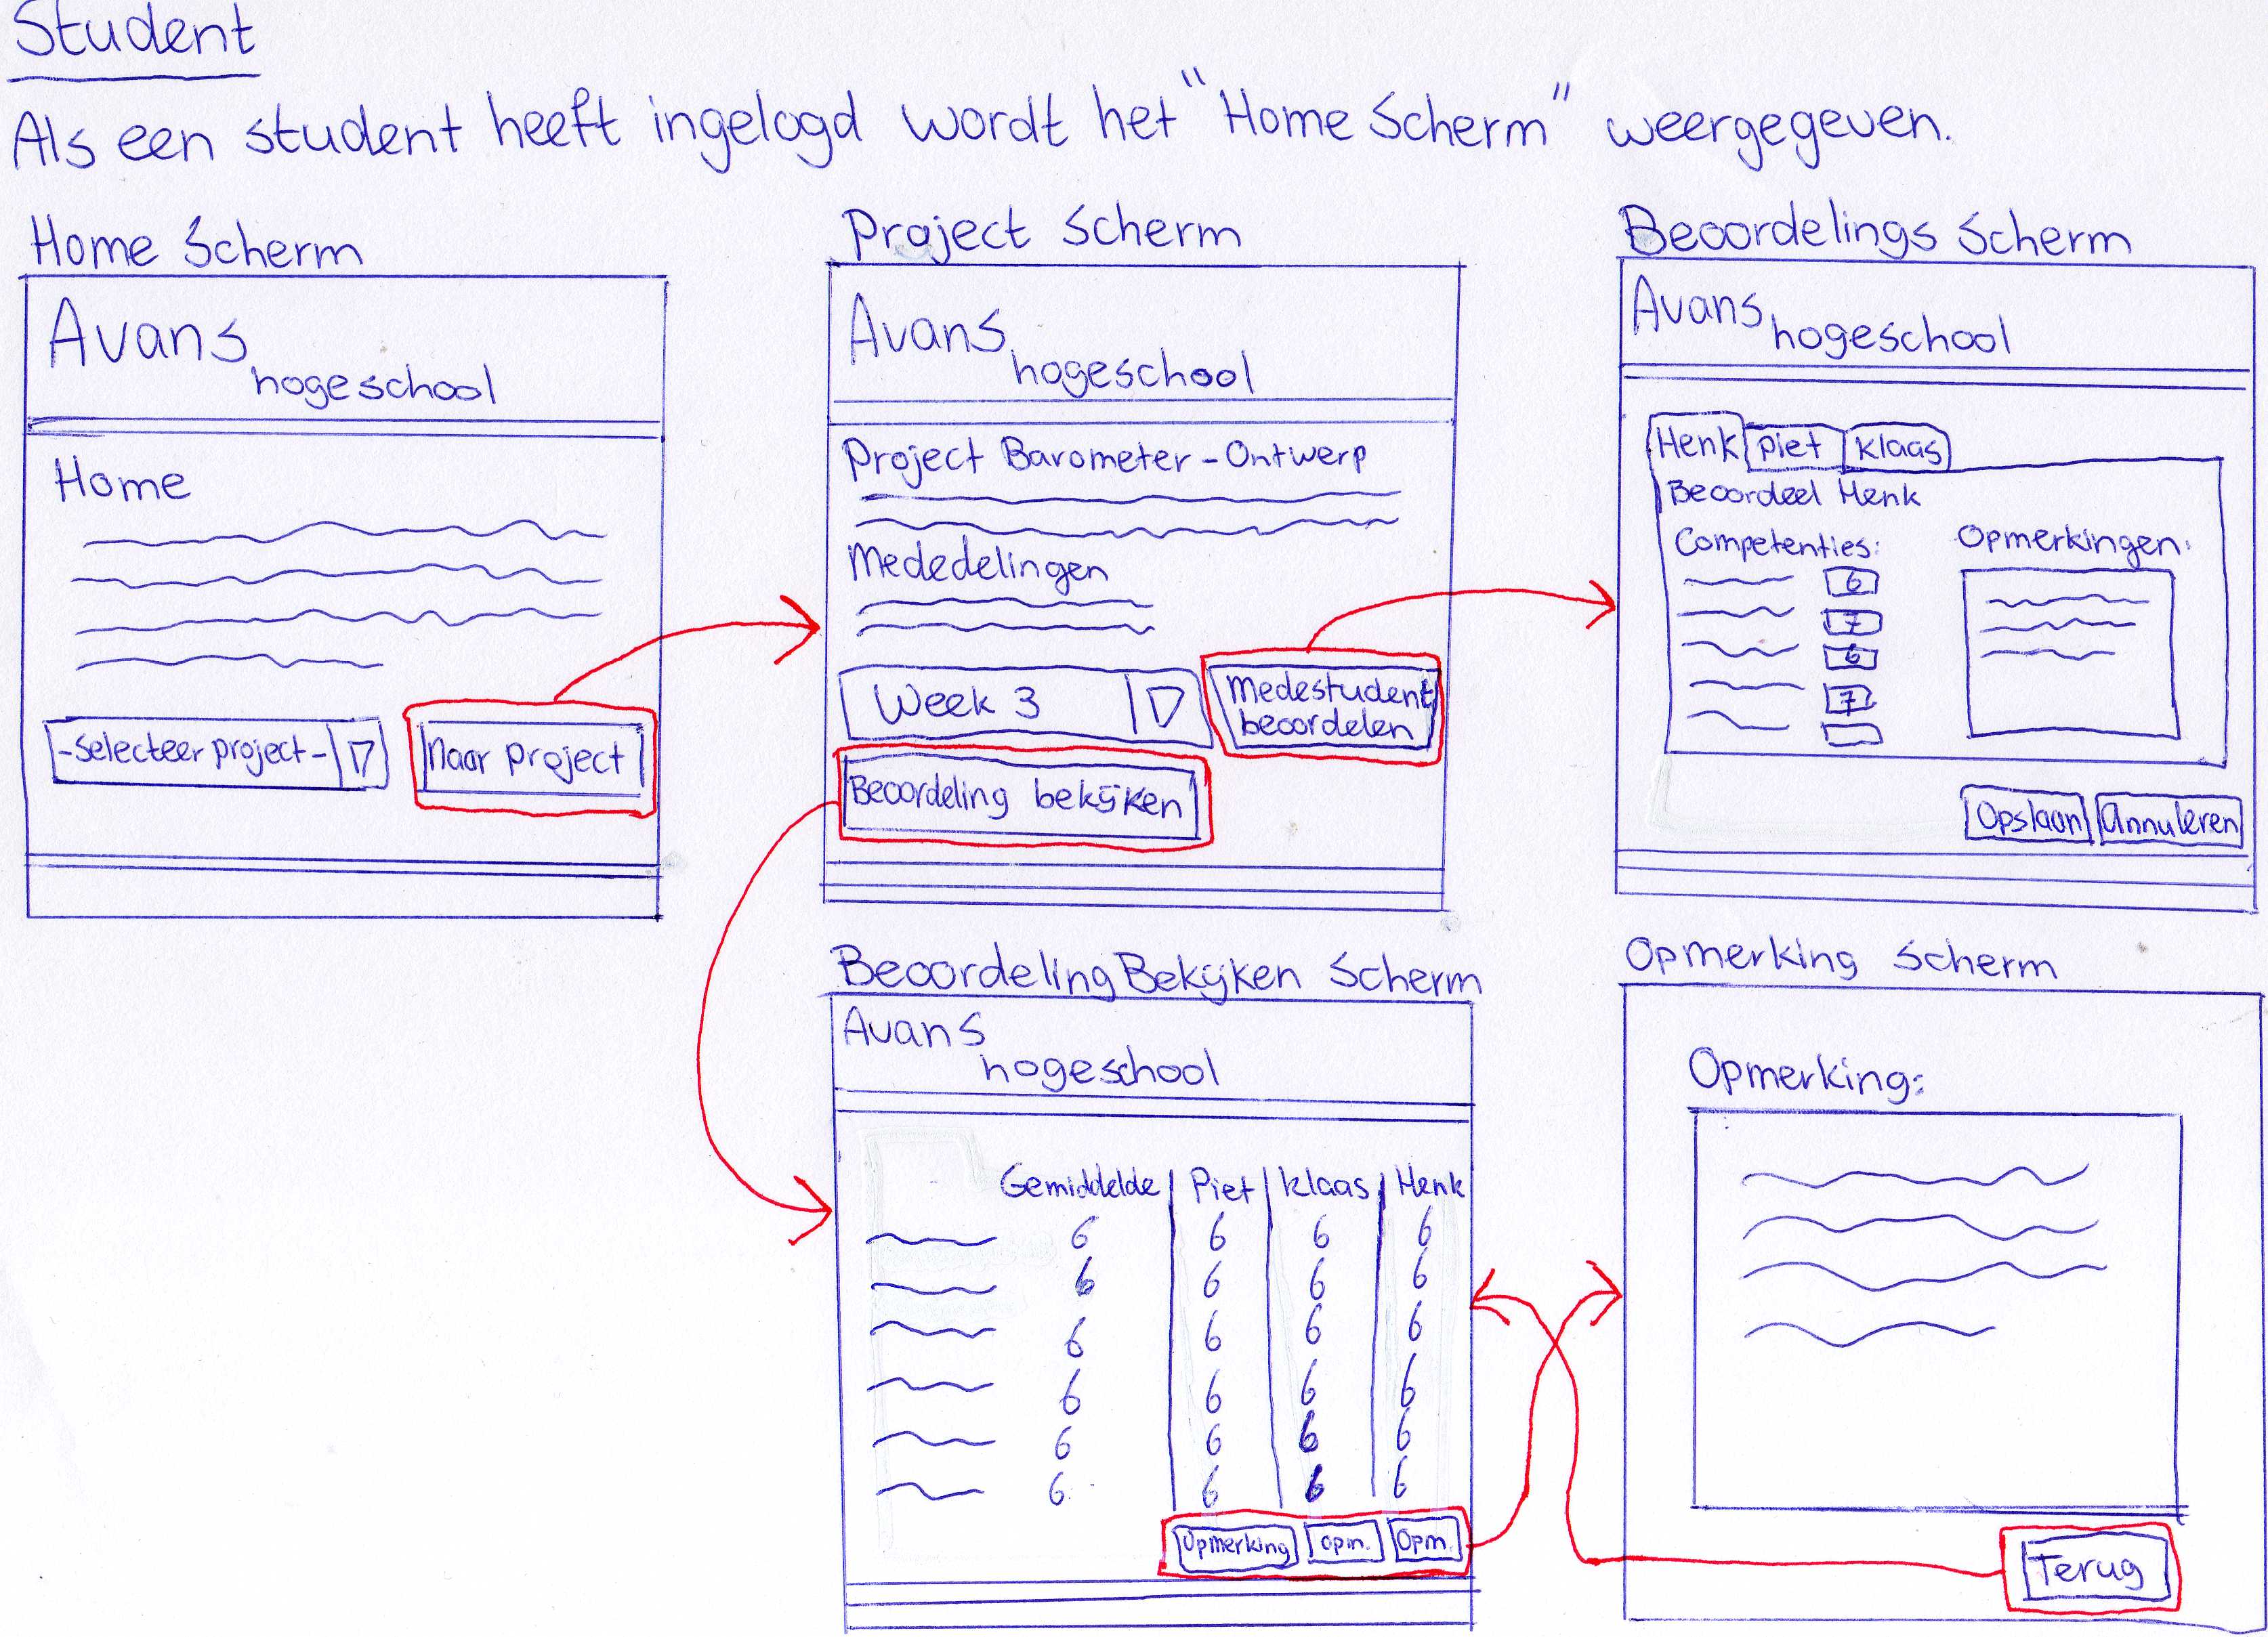 Student
Als een student heeft ingelogd wordt het "Home Scherm" weergegeven.
Home Scherm
Avans
hogeschool
Home
-Selecteer project-
Naar project
Project Scherm
Avans
hogeschool
Project Barometer-Ontwerp
Mededelingen
Week 3
Medestudent
beoordelen
Beoordeling bekijken
Beoordelings Scherm
Avans
hogeschool
Henk Piet Klaas
Beoordeel Henk
Competenties: Opmerkingen:
6
7
6
7
Opslaan Annuleren
Beoordeling Bekijken Scherm
Avans
hogeschool
Gemiddelde Piet Klaas Henk
6 6 6 6
6 6 6 6
6 6 6 6
6 6 6 6
6 6 6 6
6 6 6 6
Opmerking Opm. Opm.
Opmerking Scherm
Opmerking:
Terug